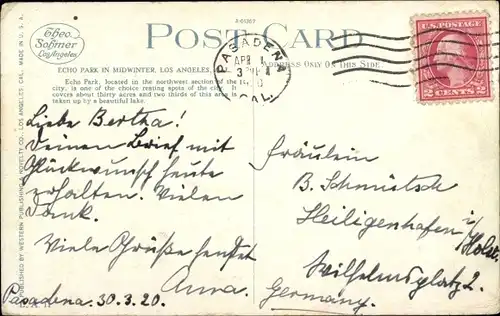 Theo
Sohmer
Los Angeles
R-61367
POST CARD
ECHO PARK IN MIDWINTER, LOS ANGELES,
ADDRESS ONLY ON THIS SIDE.
Echo Park, located in the northwest section of the
city, is one of the choice resting spots of the city. It
covers about thirty acres and two thirds of this area is
taken up by a beautiful lake.
PUBLISHED BY WESTERN PUBLISHING & NOVELTY CO., LOS ANGELES, CAL. MADE IN U. S. A.
PASADENA
APR 1
CAL.
U.S. POSTAGE
2 CENTS 2
Liebe Bertha!
Deinen Brief mit
Glückwunsch heute
erhalten. Vielen
Dank.
Viele Grüße sendet
Anna.
Pasadena. 30.3.20.
Fräulein
B. Schmütsch
Heiligenhafen i/
Holst.
Wilhelmsplatz 2.
Germany.